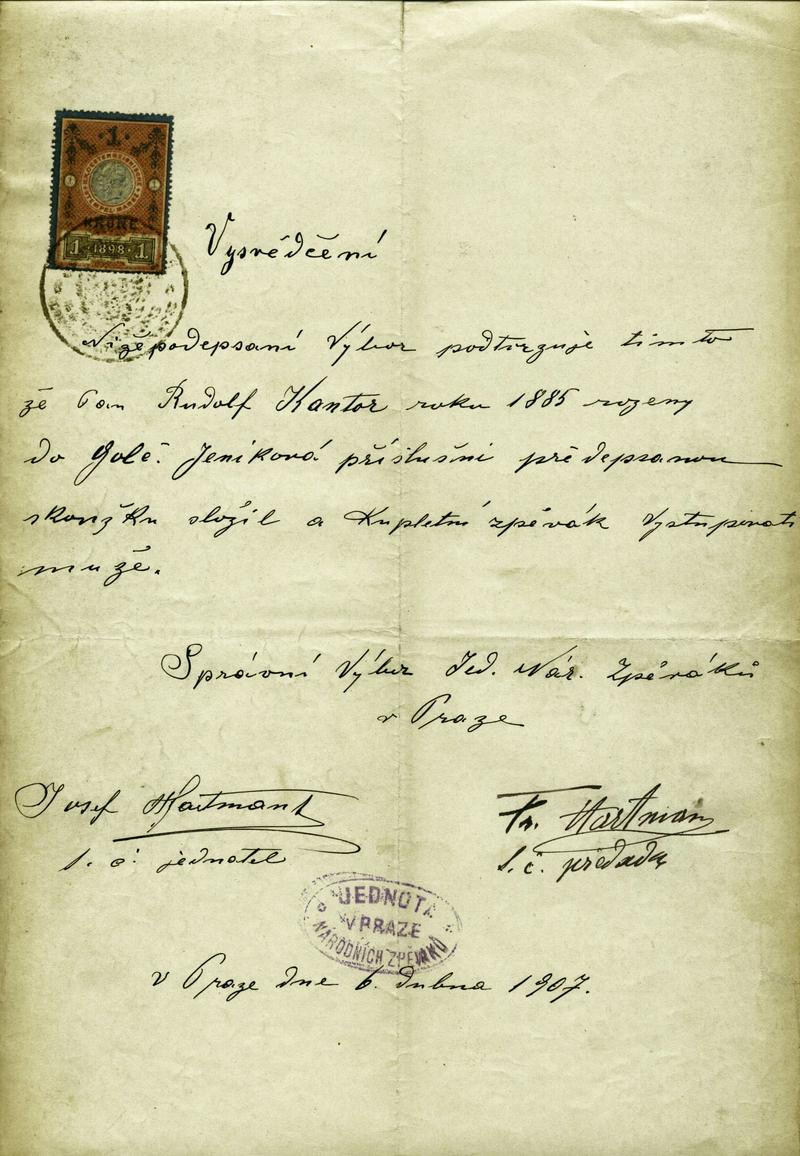 1
KRONE
1 1898 1
Vysvědčení
Nížepodepsaní Výbor podtvrzuje timto
že Pan Rudolf Kantor roku 1885 rozeny
do Golč. Jeníková příslušní předepsanou
skoužku složil a Kupletní zpěvák Vystupovati
muže.
Správní Výbor Jed. Nár. Zpěváků
v Praze
Josef Hartmant
s. č. jednatel
Fr. Hartman
s. č. předseda
JEDNOTA
V PRAZE
NÁRODNÍCH ZPĚVÁKŮ
v Praze dne 6. dubna 1907.